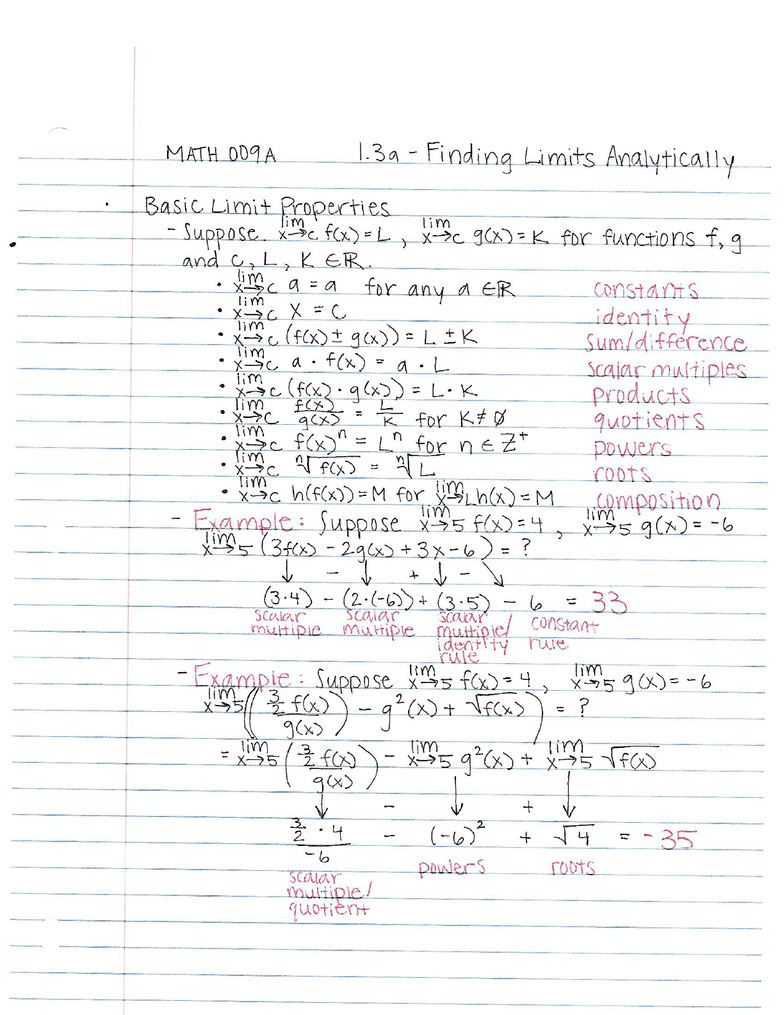 MATH 009A 1.3a - Finding Limits Analytically
Basic Limit Properties
- Suppose lim x→c f(x) = L , lim x→c g(x) = K for functions f, g
and c, L, K ∈ ℝ.
• lim x→c a = a for any a ∈ ℝ constants
• lim x→c x = c identity
• lim x→c (f(x) ± g(x)) = L ± K sum/difference
• lim x→c a · f(x) = a · L scalar multiples
• lim x→c (f(x) · g(x)) = L · K products
• lim x→c f(x)/g(x) = L/K for K ≠ 0 quotients
• lim x→c f(x)ⁿ = Lⁿ for n ∈ Z⁺ powers
• lim x→c ⁿ√f(x) = ⁿ√L roots
• lim x→c h(f(x)) = M for lim x→L h(x) = M composition
- Example: Suppose lim x→5 f(x) = 4 , lim x→5 g(x) = -6
lim x→5 (3f(x) - 2g(x) + 3x - 6) = ?
↓ - ↓ + ↓ - ↘
(3·4) - (2·(-6)) + (3·5) - 6 = 33
scalar multiple scalar multiple scalar multiple/ identity rule constant rule
- Example: Suppose lim x→5 f(x) = 4 , lim x→5 g(x) = -6
lim x→5 ((3/2 f(x)/g(x)) - g²(x) + √f(x)) = ?
= lim x→5 (3/2 f(x)/g(x)) - lim x→5 g²(x) + lim x→5 √f(x)
↓ - ↓ + ↓
3/2 · 4/-6 - (-6)² + √4 = -35
scalar multiple/ quotient powers roots